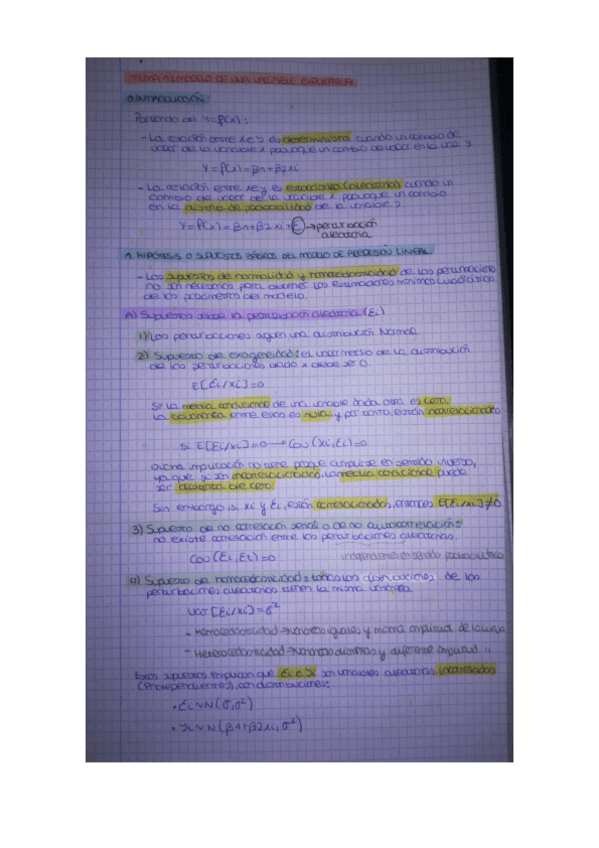 TEMA 1: MODELO DE UNA VARIABLE EXPLICATIVA
0. INTRODUCCIÓN
Partiendo de Y=f(x):
- La relación entre X e Y es determinista cuando un cambio de
valor de la variable X provoque un cambio de valor en la var. Y
Y=f(x)=β1+β2xi
- La relación entre X e Y es estocástica (aleatoria) cuando un
cambio de valor de la variable X provoque un cambio
en la distrib. de probabilidad de la variable Y
Y=f(x)=β1+β2xi+Ei→perturbación
aleatoria
1. HIPÓTESIS O SUPUESTOS BÁSICOS DEL MODELO DE REGRESIÓN LINEAL
- Los supuestos de normalidad y homocedasticidad de las perturbaciones
no son necesarios para obtener los estimadores mínimo cuadráticos
de los parámetros del modelo.
A) Supuestos sobre la perturbación aleatoria (Ei)
1) Las perturbaciones siguen una distribución Normal
2) Supuesto de exogeneidad: el valor medio de la distribución
de las perturbaciones dado x debe ser 0.
E[Ei/xi]=0
Si la media condicional de una variable dada otra es cero,
la covarianza entre estas es nula y por tanto, están incorrelacionadas
Si E[Ei/xi]=0→Cov(xi,Ei)=0
Dicha implicación no tiene porque cumplirse en sentido inverso,
ya que si son incorrelacionadas, la media condicional puede
ser distinta de cero.
Sin embargo, si xi y Ei, están correlacionadas, entonces E[Ei/xi]≠0
3) Supuesto de no correlación serial o de no autocorrelación:
no existe correlación entre las perturbaciones aleatorias.
Cov(Ei,Et)=0 independientes en sentido probabilístico
4) Supuesto de homocedasticidad: todas las distribuciones de las
perturbaciones aleatorias tienen la misma varianza
Var[Ei/xi]=σ²
- Homocedasticidad→varianzas iguales y misma amplitud de la curva
- Heterocedasticidad→varianzas distintas y diferente amplitud "
Estos supuestos implican que Ei e Yi son variables aleatorias
con distribuciones:
• Ei∼N(0,σ²)
• Yi∼N(β1+β2xi,σ²)